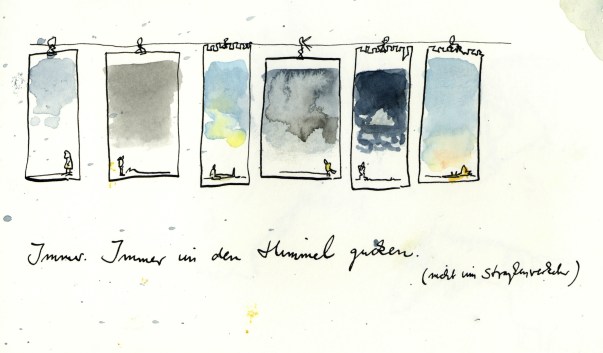 Immer. Immer in den Himmel gucken.
(nicht im Straßenverkehr)